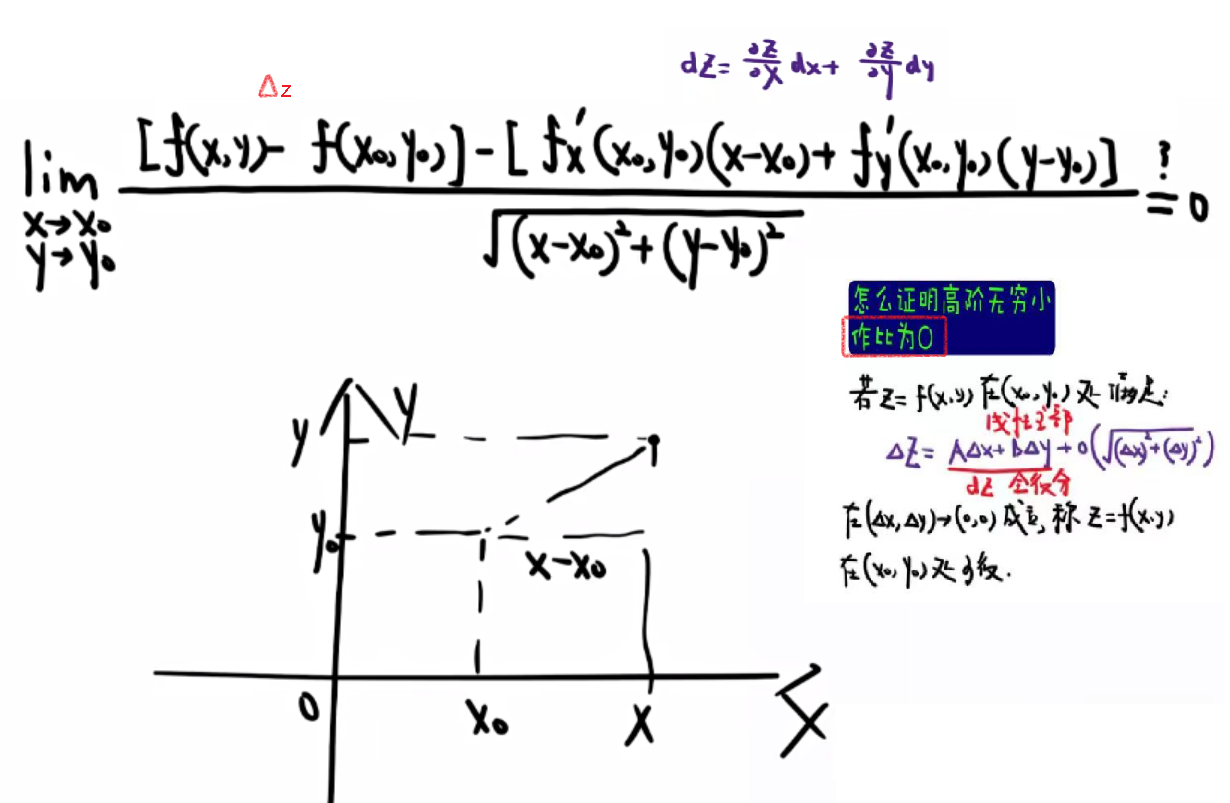 dz = ∂z/∂x dx + ∂z/∂y dy
Δz
lim x→x₀ y→y₀ [f(x,y) - f(x₀,y₀)] - [f'x(x₀,y₀)(x-x₀) + f'y(x₀,y₀)(y-y₀)] / √((x-x₀)²+(y-y₀)²) ?= 0
怎么证明高阶无穷小
作比为0
若 z = f(x,y) 在(x₀,y₀)处
线性主部
Δz = AΔx + BΔy + o(√((Δx)²+(Δy)²))
dz 全微分
在(Δx,Δy)→(0,0) 成立, 称 z=f(x,y)
在(x₀,y₀)处可微.
y
y
y₀
x-x₀
0
x₀
x
x